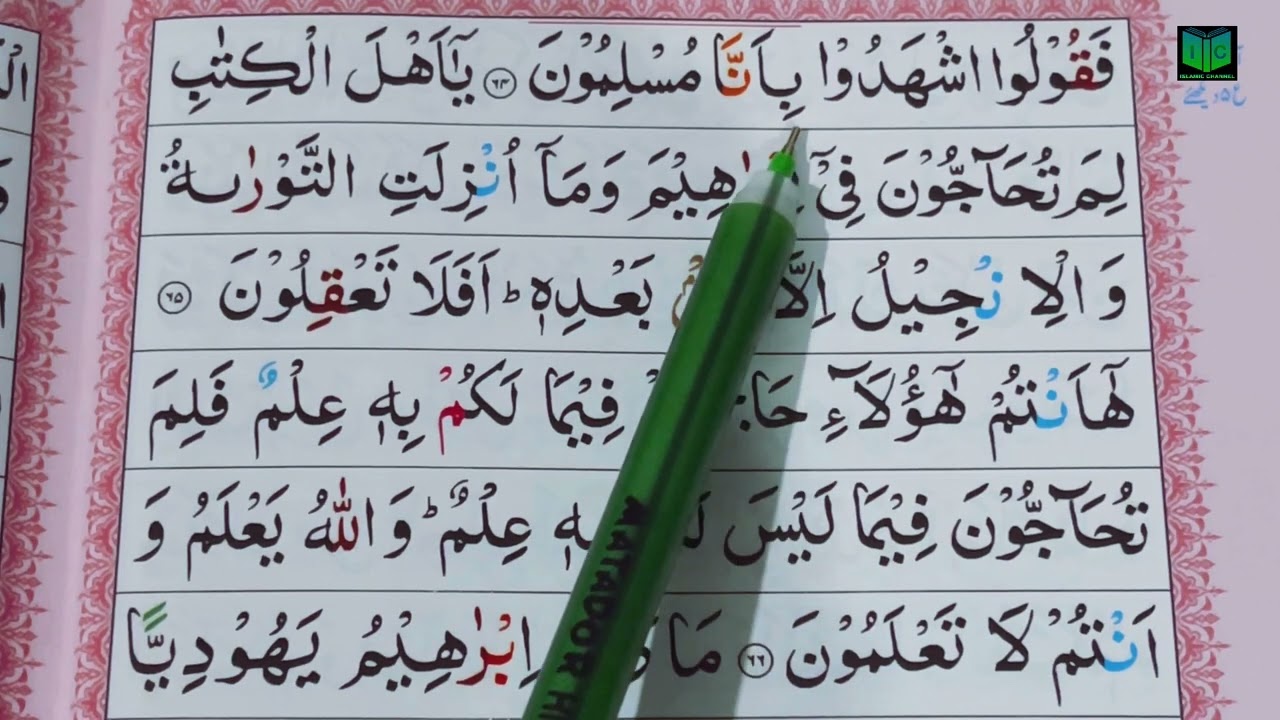 فَقُوْلُوا اشْهَدُوْا بِاَنَّا مُسْلِمُوْنَ ۶۴ يٰۤاَهْلَ الْكِتٰبِ
لِمَ تُحَآجُّوْنَ فِيْۤ هِيْمَ وَمَاۤ اُنْزِلَتِ التَّوْرٰىةُ
وَ الْاِنْجِيْلُ اِلَّا بَعْدِهٖ ؕ اَفَلَا تَعْقِلُوْنَ ۶۵
هٰۤاَنْتُمْ هٰۤؤُلَآءِ فِيْمَا لَكُمْ بِهٖ عِلْمٌ فَلِمَ
تُحَآجُّوْنَ فِيْمَا لَيْسَ عِلْمٌ ؕ وَ اللّٰهُ يَعْلَمُ وَ
اَنْتُمْ لَا تَعْلَمُوْنَ ۶۶ مَا اِبْرٰهِيْمُ يَهُوْدِيًّا
MATADOR HI
ISLAMIC CHANNEL